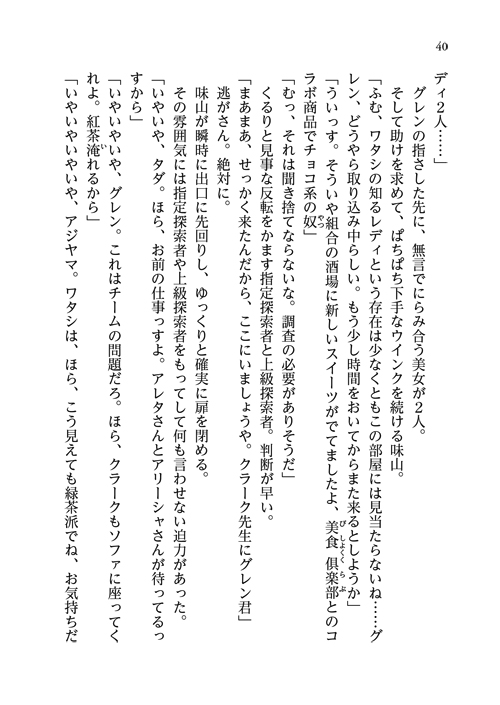 40
ディ２人……」
グレンの指さした先に、無言でにらみ合う美女が２人。
そして助けを求めて、ぱちぱち下手なウインクを続ける味山。
「ふむ、ワタシの知るレディという存在は少なくともこの部屋には見当たらないね……グ
レン、どうやら取り込み中らしい。もう少し時間をおいてからまた来るとしようか」
「ういっす。そういや組合の酒場に新しいスイーツがでてましたよ、美食倶楽部とのコ
ラボ商品でチョコ系の奴」
「むっ、それは聞き捨てならないな。調査の必要がありそうだ」
くるりと見事な反転をかます指定探索者と上級探索者。判断が早い。
「まあまあ、せっかく来たんだから、ここにいましょうや。クラーク先生にグレン君」
逃がさん。絶対に。
味山が瞬時に出口に先回りし、ゆっくりと確実に扉を閉める。
その雰囲気には指定探索者や上級探索者をもってして何も言わせない迫力があった。
「いやいや、タダ。ほら、お前の仕事っすよ。アレタさんとアリーシャさんが待ってるっ
すから」
「いやいやいや、グレン。これはチームの問題だろ。ほら、クラークもソファに座ってく
れよ。紅茶淹れるから」
「いやいやいやいや、アジヤマ。ワタシは、ほら、こう見えても緑茶派でね、お気持ちだ